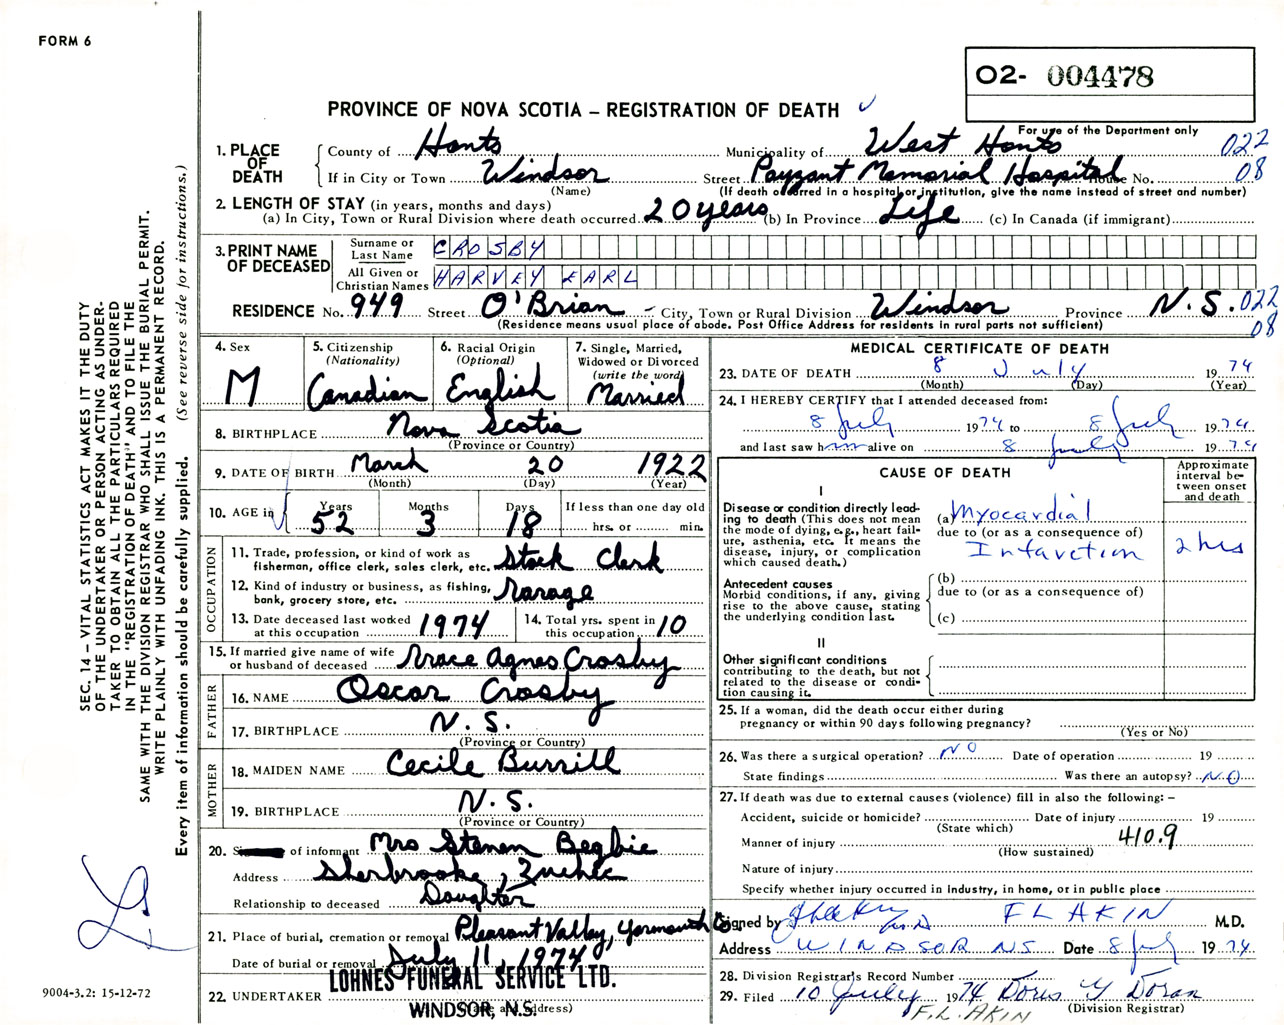 FORM 6
O2- 004478
For use of the Department only
PROVINCE OF NOVA SCOTIA – REGISTRATION OF DEATH
1. PLACE OF DEATH
County of Hants Municipality of West Hants 022
If in City or Town Windsor Street Payzant Memorial Hospital House No. 08
(Name) (If death occurred in a hospital or institution, give the name instead of street and number)
2. LENGTH OF STAY (in years, months and days)
(a) In City, Town or Rural Division where death occurred 20 years (b) In Province Life (c) In Canada (if immigrant)
3. PRINT NAME OF DECEASED
Surname or Last Name CROSBY
All Given or Christian Names HARVEY EARL
RESIDENCE No. 949 Street O'Brian – City, Town or Rural Division Windsor Province N.S. 022
(Residence means usual place of abode. Post Office Address for residents in rural parts not sufficient) 08
4. Sex M
5. Citizenship (Nationality) Canadian
6. Racial Origin (Optional) English
7. Single, Married, Widowed or Divorced (write the word) Married
8. BIRTHPLACE Nova Scotia
(Province or Country)
9. DATE OF BIRTH March 20 1922
(Month) (Day) (Year)
10. AGE in Years 52 Months 3 Days 18 If less than one day old hrs. or min.
OCCUPATION
11. Trade, profession, or kind of work as fisherman, office clerk, sales clerk, etc. Stock Clerk
12. Kind of industry or business, as fishing, bank, grocery store, etc. Garage
13. Date deceased last worked at this occupation 1974
14. Total yrs. spent in this occupation 10
15. If married give name of wife or husband of deceased Grace Agnes Crosby
FATHER
16. NAME Oscar Crosby
17. BIRTHPLACE N.S.
(Province or Country)
MOTHER
18. MAIDEN NAME Cecile Burrill
19. BIRTHPLACE N.S.
(Province or Country)
20. of informant Mrs Begbie
Address Sherbrooke, Quebec
Relationship to deceased Daughter
21. Place of burial, cremation or removal Pleasant Valley, Yarmouth Co.
Date of burial or removal July 11, 1974
22. UNDERTAKER LOHNES FUNERAL SERVICE LTD.
WINDSOR, N.S.
(Name and Address)
MEDICAL CERTIFICATE OF DEATH
23. DATE OF DEATH 8 July 19 74
(Month) (Day) (Year)
24. I HEREBY CERTIFY that I attended deceased from:
8 July 19 74 to 8 July 19 74
and last saw him alive on 8 July 19 74
CAUSE OF DEATH
Approximate interval between onset and death
I
Disease or condition directly leading to death (This does not mean the mode of dying, e.g., heart failure, asthenia, etc. It means the disease, injury, or complication which caused death.)
(a) Myocardial
due to (or as a consequence of)
Infarction 2 hrs
Antecedent causes
Morbid conditions, if any, giving rise to the above cause, stating the underlying condition last.
(b)
due to (or as a consequence of)
(c)
II
Other significant conditions contributing to the death, but not related to the disease or condition causing it.
25. If a woman, did the death occur either during pregnancy or within 90 days following pregnancy?
(Yes or No)
26. Was there a surgical operation? NO Date of operation 19
State findings Was there an autopsy? NO
27. If death was due to external causes (violence) fill in also the following: –
Accident, suicide or homicide? Date of injury 19
(State which)
Manner of injury 410.9
(How sustained)
Nature of injury
Specify whether injury occurred in Industry, in home, or in public place
Signed by F L AKIN M.D.
Address WINDSOR NS Date 8 July 19 74
28. Division Registrar's Record Number
29. Filed 10 July 1974 Doris Y Doran
F.L. AKIN (Division Registrar)
SEC. 14 – VITAL STATISTICS ACT MAKES IT THE DUTY
OF THE UNDERTAKER OR PERSON ACTING AS UNDER-
TAKER TO OBTAIN ALL THE PARTICULARS REQUIRED
IN THE "REGISTRATION OF DEATH" AND TO FILE THE
SAME WITH THE DIVISION REGISTRAR WHO SHALL ISSUE THE BURIAL PERMIT.
WRITE PLAINLY WITH UNFADING INK. THIS IS A PERMANENT RECORD.
Every item of information should be carefully supplied. (See reverse side for instructions.)
9004-3.2: 15-12-72